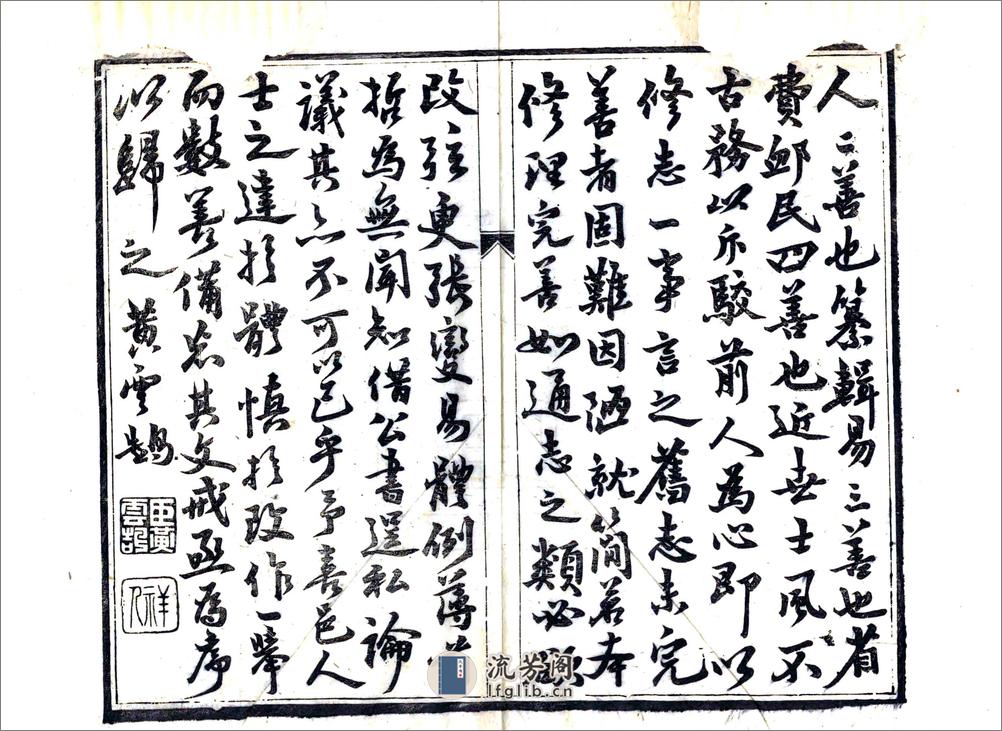 人二善也纂輯易三善也省
費卹民四善也近世士風不
古務以斥駁前人為心即以
修志一事言之舊志未完
善者固難因陋就簡若本
修理完善如通志之類必欲
改弦更張變易體例薄前
哲為無聞知借公書逞私論
議其亦不可以已乎予喜邑人
士之達於體慎於改作一舉
而數善備焉其文戒亟為序
以歸之黃雲鵠
臣黃雲鵠
祥人
流芳阁
lfglib.cn